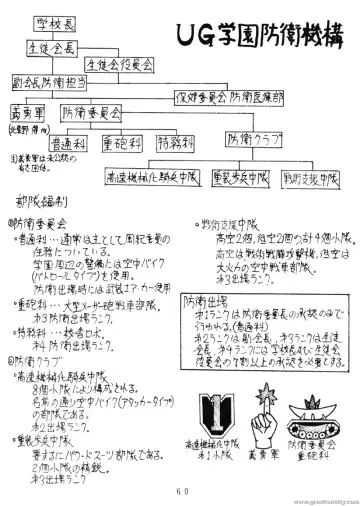 UG学園防衛機構
学校長
生徒会長
生徒会役員会
副会長防衛担当
保健委員会防衛医療部
義勇軍
防衛委員会
防衛クラブ
普通科
重砲科
特務科
注)義勇軍は未公認の
有志団体。
高速機械化騎兵中隊
重装歩兵中隊
戦術支援中隊
部隊編制
◎防衛委員会
・普通科…通常は主として風紀委員の
任務についている。
学園周辺の警備には空中バイク
(パトロールタイプ)を使用。
防衛出場時には武装エアカー使用
・重砲科…大型メーザー砲戦車部隊。
オ3防衛出場ランク。
・特務科…
オ4防衛出場ランク。
◎防衛クラブ
・高速機械化騎兵中隊
8個小隊により構成される。
名前の通り空中バイク(アタッカータイプ)
の部隊である。
オ2出場ランク。
・重装歩兵中隊
要するにパワードスーツ部隊である。
2個小隊の編制。
オ3出場ランク。
・戦術支援中隊
高空2個、低空2個の計4個小隊。
高空は戦術戦闘攻撃機、低空は
大火力の空中戦車部隊。
オ3出場ランク。
防衛出場
オ1ランクは防衛委員長の承認のみで
行われる。(普通科)
オ2ランクは副会長、オ3ランクは生徒
会長、オ4ランクには学校長及び生徒会
役員会の7割以上の承認を必要とする。
高速機械化中隊
オ1小隊
義勇軍
防衛委員会
重砲科
60